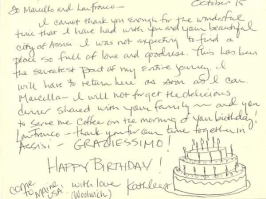 October 15
To Marcella and Lanfranco -
I cannot thank you enough for the wonderful
time that I have had with you and your beautiful
city of Assisi. I was not expecting to find a
place so full of love and goodness. This has been
the sweetest part of my entire journey. I
will have to return here as soon as I can
Marcella - I will not forget the delicious
dinner shared with your family - and you
to serve me coffee on the morning of your birthday!
Lanfranco - thank you for our time together in
Assisi - GRAZIESSIMO!
HAPPY BIRTHDAY!
come to Maine USA!
with love Kathleen